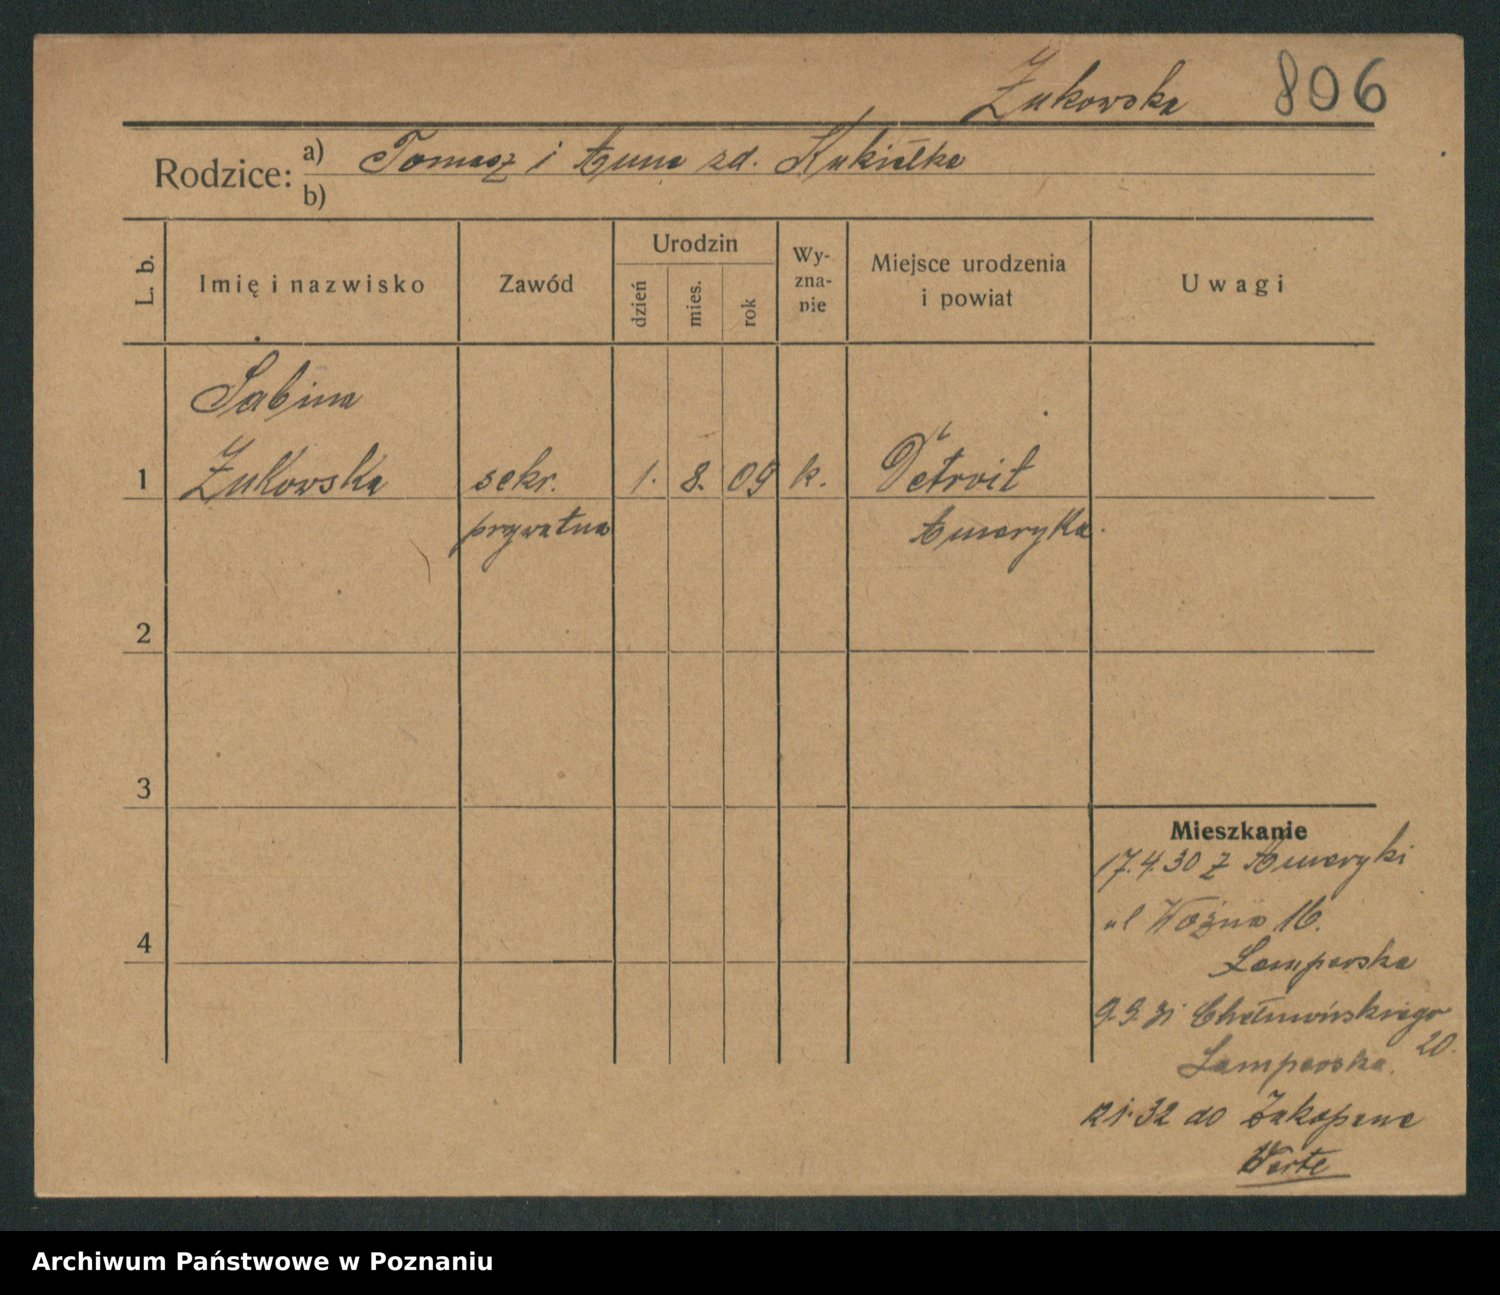 Żukowska 806
Rodzice: a) Tomasz i Anna zd. Kukiełka
b)
L. b.
Imię i nazwisko
Zawód
Urodzin
dzień
mies.
rok
Wy-
zna-
nie
Miejsce urodzenia
i powiat
Uwagi
Sabina
1 Żukowska sekr. 1. 8. 09 k. Detroit
prywatna Ameryka.
2
3
Mieszkanie
17.4.30 z Ameryki
ul Woźna 16.
4
Lamperska
Chełmońskiego
20.
Lamperska.
32 do Zakopane
Verte
Archiwum Państwowe w Poznaniu